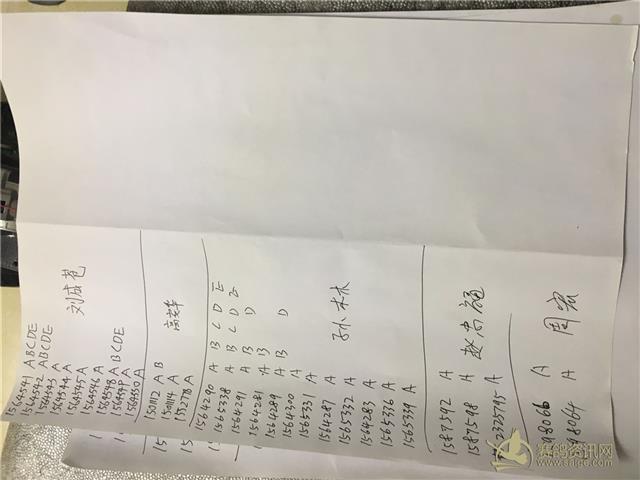 1564541 ABCDE
1564542 ABCDE
1564543 A
1564544 A
1564545 A
1564546 A
1564548 A
ABCDE
1564550 A
刘成苍
1501112 A B
1501114 A
A
高辉
1564290 A B C D E
1565338 A B C D E
1564291 A B D
1564281 A B
1564289 A B D
1564300 A
1565331 A
1564287 A
1565332 A
1564283 A
1565336 A
1565339 A
孙木林
1587592 A
1587598 A
2320795 A
赵尚
98066 A
98064 A
周宏
赛鸽资讯网